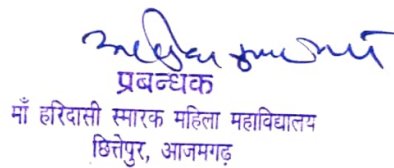 प्रबन्धक
माँ हरिदासी स्मारक महिला महाविद्यालय
छित्तेपुर, आजमगढ़